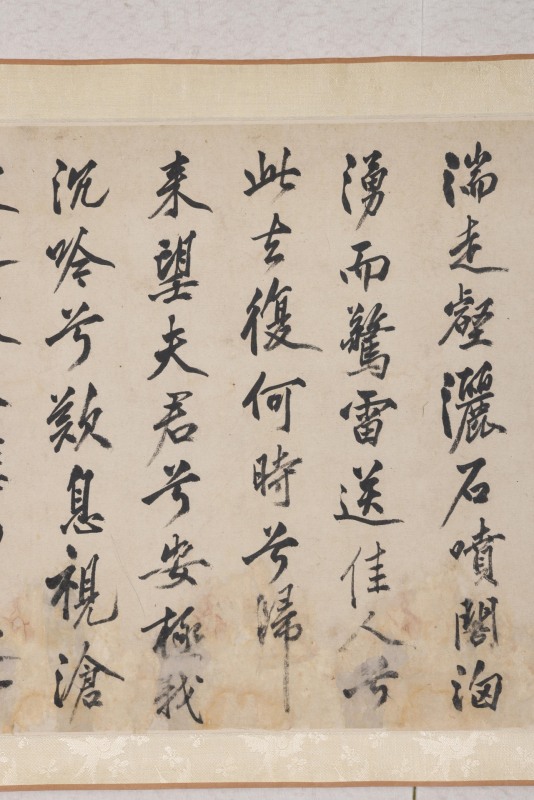 湍走壑灑石噴閣洶
湧而驚雷送佳人兮
此去復何時兮歸
来望夫君兮安極我
沉吟兮歎息視滄